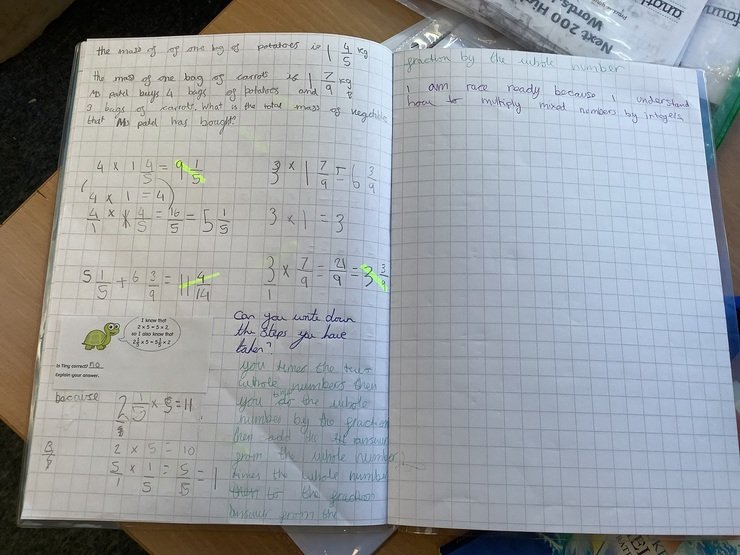 the mass of of one bag of potatoes is 1 4/5 kg
the mass of one bag of carrots is 1 7/9 kg
Ms patel buys 4 bags of potatoes and
3 bags of carrots. What is the total mass of vegetables
that Ms patel has bought?
4 × 1 4/5 = 9 1/5
4 × 1 = 4
4/1 × 4/5 = 16/5 = 5 1/5
5 1/5 + 6 3/9 = 11 4/14
3 × 1 7/9 = 6 3/9
3 × 1 = 3
3/1 × 7/9 = 21/9 = 3 3/9
I know that
2 × 5 = 5 × 2
so I also know that
Is Tiny correct? no
Explain your answer.
because 2 1/5 × 5 = 11
2 × 5 = 10
5/1 × 1/5 = 5/5 = 1
Can you write down
the steps you have
taken?
you times the two
whole numbers then
you times the whole
number by the fraction
then add the answer
from the whole number
times the whole number
then to the fraction
answer from the
fraction by the whole number
I am race ready because I understand
how to multiply mixed numbers by integers
Next 200 High
Words